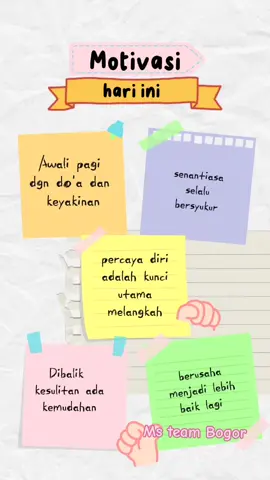 Motivasi
hari ini
Awali pagi
dgn do'a dan
keyakinan
senantiasa
selalu
bersyukur
percaya diri
adalah kunci
utama
melangkah
Dibalik
kesulitan ada
kemudahan
berusaha
menjadi lebih
baik lagi
Ms team Bogor